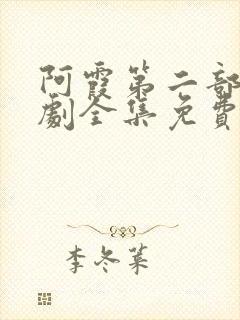 阿霞第二部
劇全集免費
李冬菓